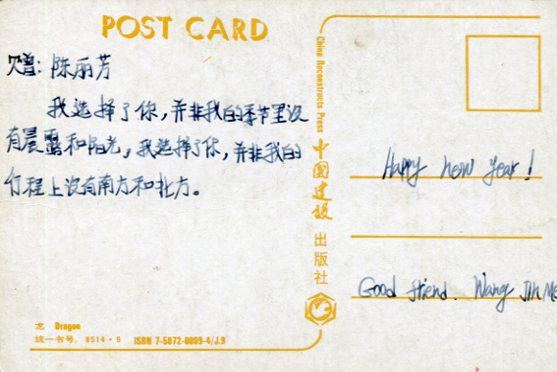 POST CARD
陈丽芳
我选择了你,并非我的季节里没
有晨露和阳光,我选择了你,并非我的
行程上没有南方和北方。
龙 Dragon
统一书号: 8514·9 ISBN 7-5072-0009-4/J.9
China Reconstructs Press
中國建設
出版社
Happy new year!
Good friend. Wang Jin